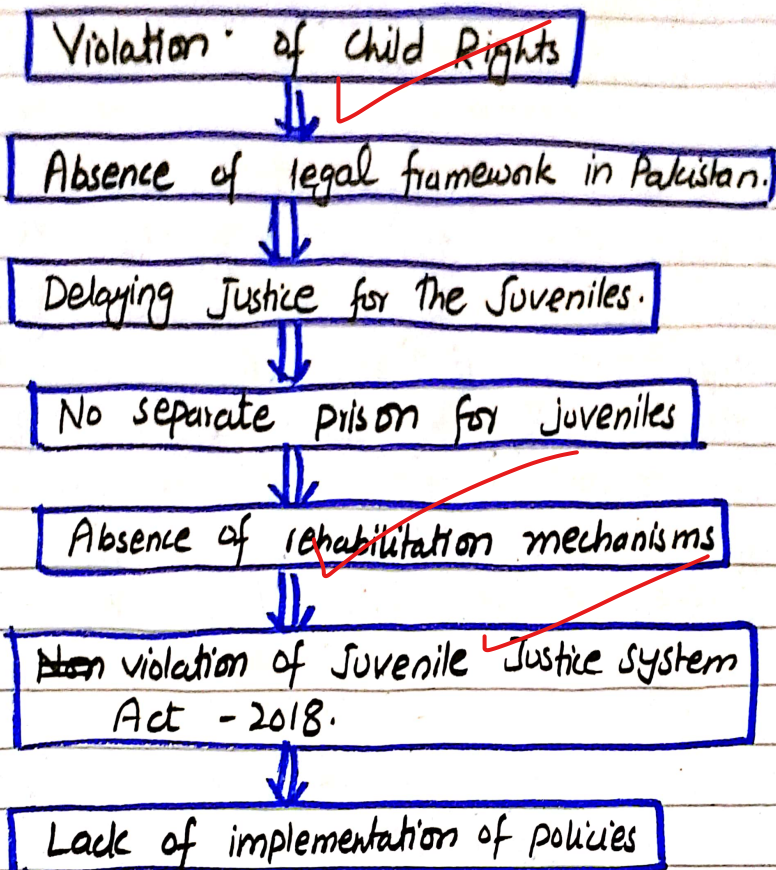 Violation of Child Rights
Absence of legal framework in Pakistan.
Delaying Justice for the Juveniles.
No separate prison for juveniles
Absence of rehabilitation mechanisms
violation of Juvenile Justice system
Act - 2018.
Lack of implementation of policies